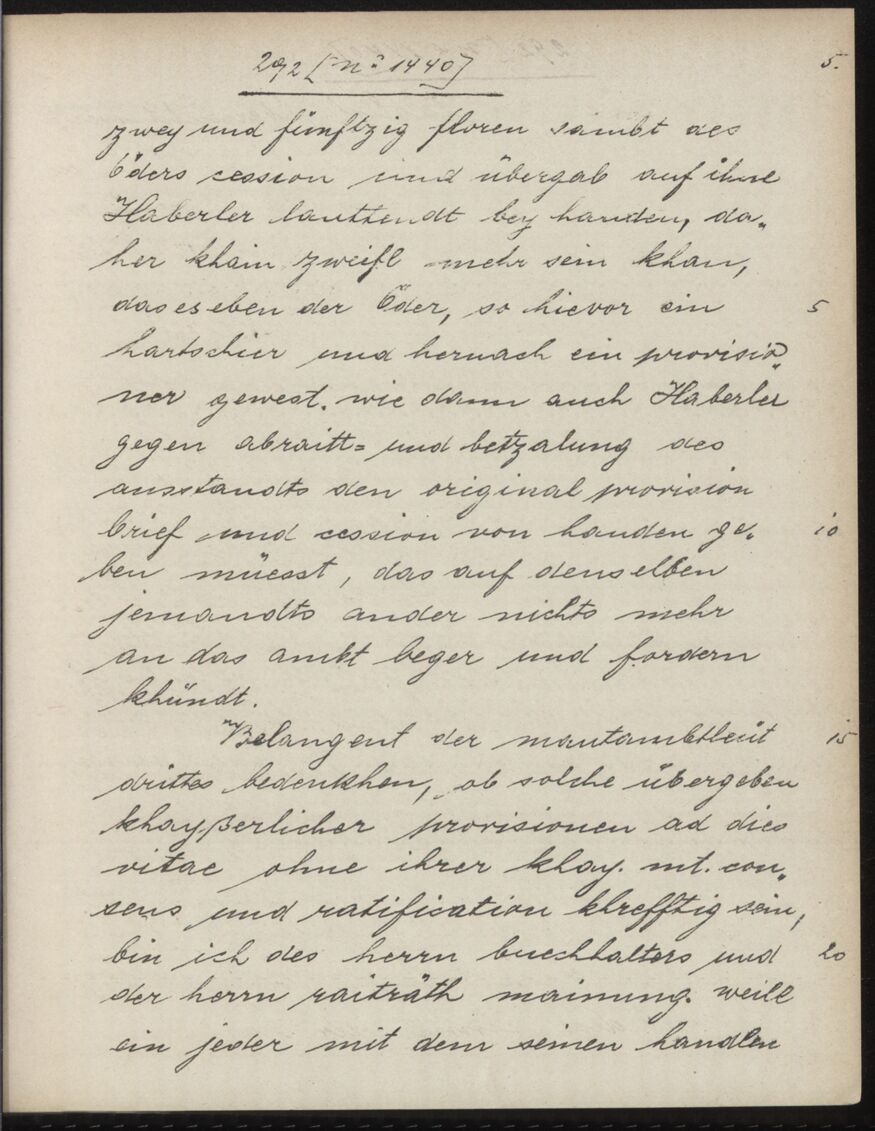 292 [Nº 1440]
5.
zwey und fünftzig floren sambt des
Öders cession und übergab auf ihne
Haberler lauttendt bey handen, da„
her khain zweifl mehr sein khan,
das es eben der Öder, so hievor ein 5
hartschier und hernach ein provisio„
ner gewest. wie dann auch Haberler
gegen abraitt= und betzalung des
ausstandts den original provision
brief und cession von handen ge„ 10
ben müesst, das auf denselben
jemandts ander nichts mehr
an das ambt beger und fordern
khündt.
Belangent der mautambtleüt 15
drittes bedenkhen, ob solche übergeben
khayßerlicher provisionen ad dies
vitae ohne ihrer khay. mt. con„
sens und ratification khrefftig sein,
bin ich des herrn buechhalters und 20
der herrn raiträth mainung. weill
ein jeder mit dem seinen handlen